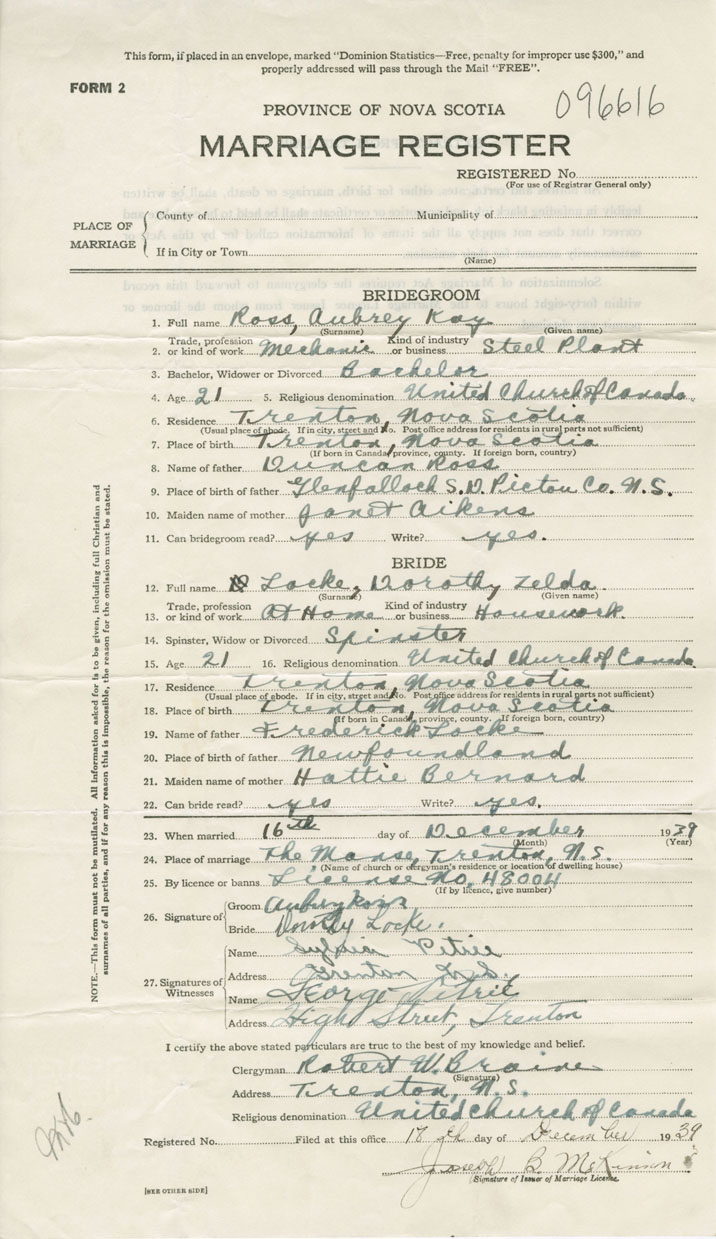 This form, if placed in an envelope, marked "Dominion Statistics—Free, penalty for improper use $300," and
properly addressed will pass through the Mail "FREE".
FORM 2
096616
PROVINCE OF NOVA SCOTIA
MARRIAGE REGISTER
REGISTERED No.
(For use of Registrar General only)
PLACE OF MARRIAGE
County of Municipality of
If in City or Town
(Name)
BRIDEGROOM
1. Full name Ross, Aubrey Kay
(Surname) (Given name)
2. Trade, profession or kind of work Mechanic Kind of industry or business Steel Plant
3. Bachelor, Widower or Divorced Bachelor
4. Age 21 5. Religious denomination United Church of Canada.
6. Residence Trenton, Nova Scotia
(Usual place of abode. If in city, street and No. Post office address for residents in rural parts not sufficient)
7. Place of birth Trenton, Nova Scotia
(If born in Canada, province, county. If foreign born, country)
8. Name of father Duncan Ross
9. Place of birth of father Glenfalloch S.D. Pictou Co. N.S.
10. Maiden name of mother Janet Aikens
11. Can bridegroom read? yes Write? yes.
BRIDE
12. Full name Locke, Dorothy Zelda.
(Surname) (Given name)
13. Trade, profession or kind of work At Home Kind of industry or business Housework.
14. Spinster, Widow or Divorced Spinster
15. Age 21 16. Religious denomination United Church of Canada
17. Residence Trenton, Nova Scotia
(Usual place of abode. If in city, street and No. Post office address for residents in rural parts not sufficient)
18. Place of birth Trenton, Nova Scotia
(If born in Canada, province, county. If foreign born, country)
19. Name of father Frederick Locke
20. Place of birth of father Newfoundland
21. Maiden name of mother Hattie Bernard
22. Can bride read? yes Write? yes.
23. When married 16th day of December 1939
(Month) (Year)
24. Place of marriage The Manse, Trenton, N.S.
(Name of church or clergyman's residence or location of dwelling house)
25. By licence or banns License No. 48004
(If by licence, give number)
26. Signature of
Groom Aubrey Ross
Bride Dorothy Locke.
27. Signatures of Witnesses
Name Sylvia Petrie
Address Trenton N.S.
Name George Petrie
Address High Street, Trenton
I certify the above stated particulars are true to the best of my knowledge and belief.
Clergyman Robert W. Braine
(Signature)
Address Trenton, N.S.
Religious denomination United Church of Canada
Registered No. Filed at this office 18th day of December 1939
Joseph B. McKinnon
Signature of Issuer of Marriage License.
[SEE OTHER SIDE]
NOTE.—This form must not be mutilated. All information asked for is to be given, including full Christian and
surnames of all parties, and if for any reason this is impossible, the reason for the omission must be stated.